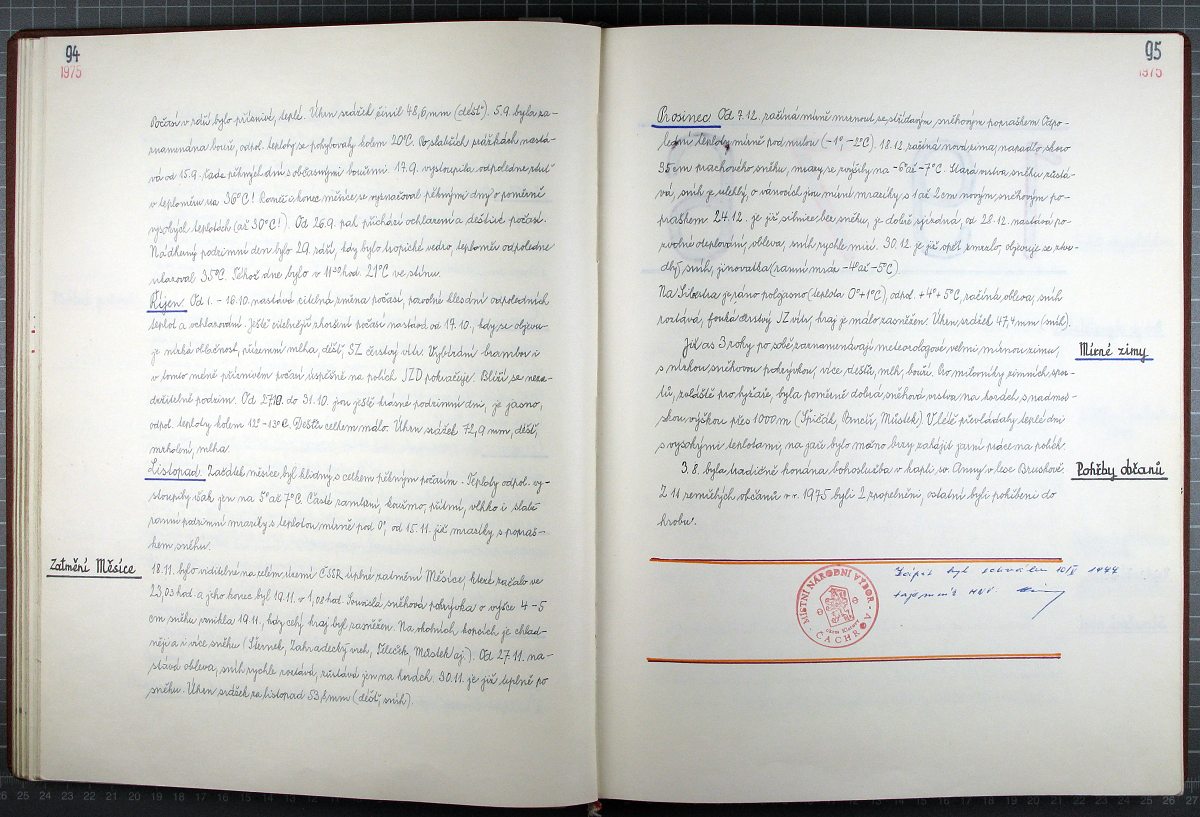 94
1975
Počasí v září bylo příznivé, teplé. Úhrn srážek činil 48,6 mm (déšť). 5.9. byla za-
znamenána bouře, odpol. teploty se pohybovaly kolem 20°C. Po slabších srážkách nastá-
vá od 15.9. řada pěkných dní s občasnými bouřemi. 17.9. vystoupila odpoledne rtuť
v teploměru na 36°C! Rovněž konec měsíce se vyznačoval pěknými dny o poměrně
vysokých teplotách (až 30°C!). Od 26.9. pak přichází ochlazení a deštivé počasí.
Nádherný podzimní den bylo 29. září, kdy bylo tropické vedro, teploměr odpoledne
ukazoval 35°C. Téhož dne bylo v 11 hod. 21°C ve stínu.
Říjen. Od 1. - 16.10. nastává citelná změna počasí, pozvolné klesání odpoledních
teplot a ochlazování. Ještě citelnější zhoršení počasí nastává od 19.10., kdy se objevu-
je nízká oblačnost, přízemní mlha, déšť, SZ čerstvý vítr. Vybírání brambor i
v tomto méně příznivém počasí úspěšně na polích JZD pokračuje. Blíží se neza-
držitelně podzim. Od 27.10. do 31.10. jsou ještě krásné podzimní dni, je jasno,
odpol. teploty kolem 12°-13°C. Deště celkem málo. Úhrn srážek 72,9 mm, déšť,
mrholení, mlha.
Listopad. Začátek měsíce byl klidný s celkem pěkným počasím. Teploty odpol. vy-
stoupily však jen na 5° až 7°C. Časté ranní, kouřmo, přítmí, vlhko i slabé
ranní podzimní mrazíky s teplotou mírně pod 0°, od 15.11. již mrazíky s popraš-
kem sněhu.
Zatmění Měsíce
18.11. bylo viditelné na celém území ČSSR úplné zatmění Měsíce, které začalo ve
23,03 hod. a jeho konec byl 19.11. v 1,08 hod. Souvislá sněhová pokrývka o výšce 4-5
cm sněhu vznikla 19.11., kdy celý kraj byl zasněžen. Na okolních kopcích je chlad-
něji a i více sněhu (Šternek, Zahradecký vrch, Můstek aj.). Od 27.11. na-
stává obleva, sníh rychle roztává, zůstává jen na horách. 30.11. je již úplně po
sněhu. Úhrn srážek za listopad mm (déšť, sníh).
95
1975
Prosinec. Od 7.12. začíná mírně mrznout se střídavým sněhovým popraškem. Odpo-
lední teploty mírně pod nulou (-1°, -2°C). 18.12. začíná nová zima, napadlo skoro
35 cm prachového sněhu, mrazy se zvýšily na -6° až -7°C. Stará vrstva sněhu zůstá-
vá, sníh je ulehlý, o vánocích jsou mírné mrazíky s 1 až 2 cm novým sněhovým po-
praškem. 24.12. je již silnice bez sněhu, je dobře sjízdná, od 28.12. nastává po-
zvolné oteplování, obleva, sníh rychle mizí. 30.12. je již opět zmrzlo, objevuje se ztvr-
dlý sníh, jinovatka (ranní mráz -4° až -5°C).
Na Silvestra je ráno polojasno (teplota 0° +1°C), odpol. +4° +5°C, začíná obleva, sníh
roztává, fouká čerstvý JZ vítr, kraj je málo zasněžen. Úhrn srážek 47,4 mm (sníh).
Mírné zimy
Již as 3 roky po sobě zaznamenávají meteorologové velmi mírnou zimu,
s nízkou sněhovou pokrývkou, více deště, mlh, bouří. Pro milovníky zimních spor-
tů, zvláště pro lyžaře, byla poměrně dobrá sněhová vrstva na horách s nadmoř-
skou výškou přes 1000 m (Špičák, Pancíř, Můstek). V létě převládaly teplé dni
s vysokými teplotami, na jaře bylo možno brzy zahájit jarní práce na polích.
Pohřby občanů
3.8. byla tradičně konána bohoslužba v kapli sv. Anny v lese Bruskové.
Z 11 zemřelých občanů v r. 1975 byli 2 zpopelněni, ostatní byli pohřbeni do
hrobu.
MÍSTNÍ NÁRODNÍ VÝBOR
okres Klatovy
ČACHROV
Zápis byl schválen 10/5 1977
tajemník MNV